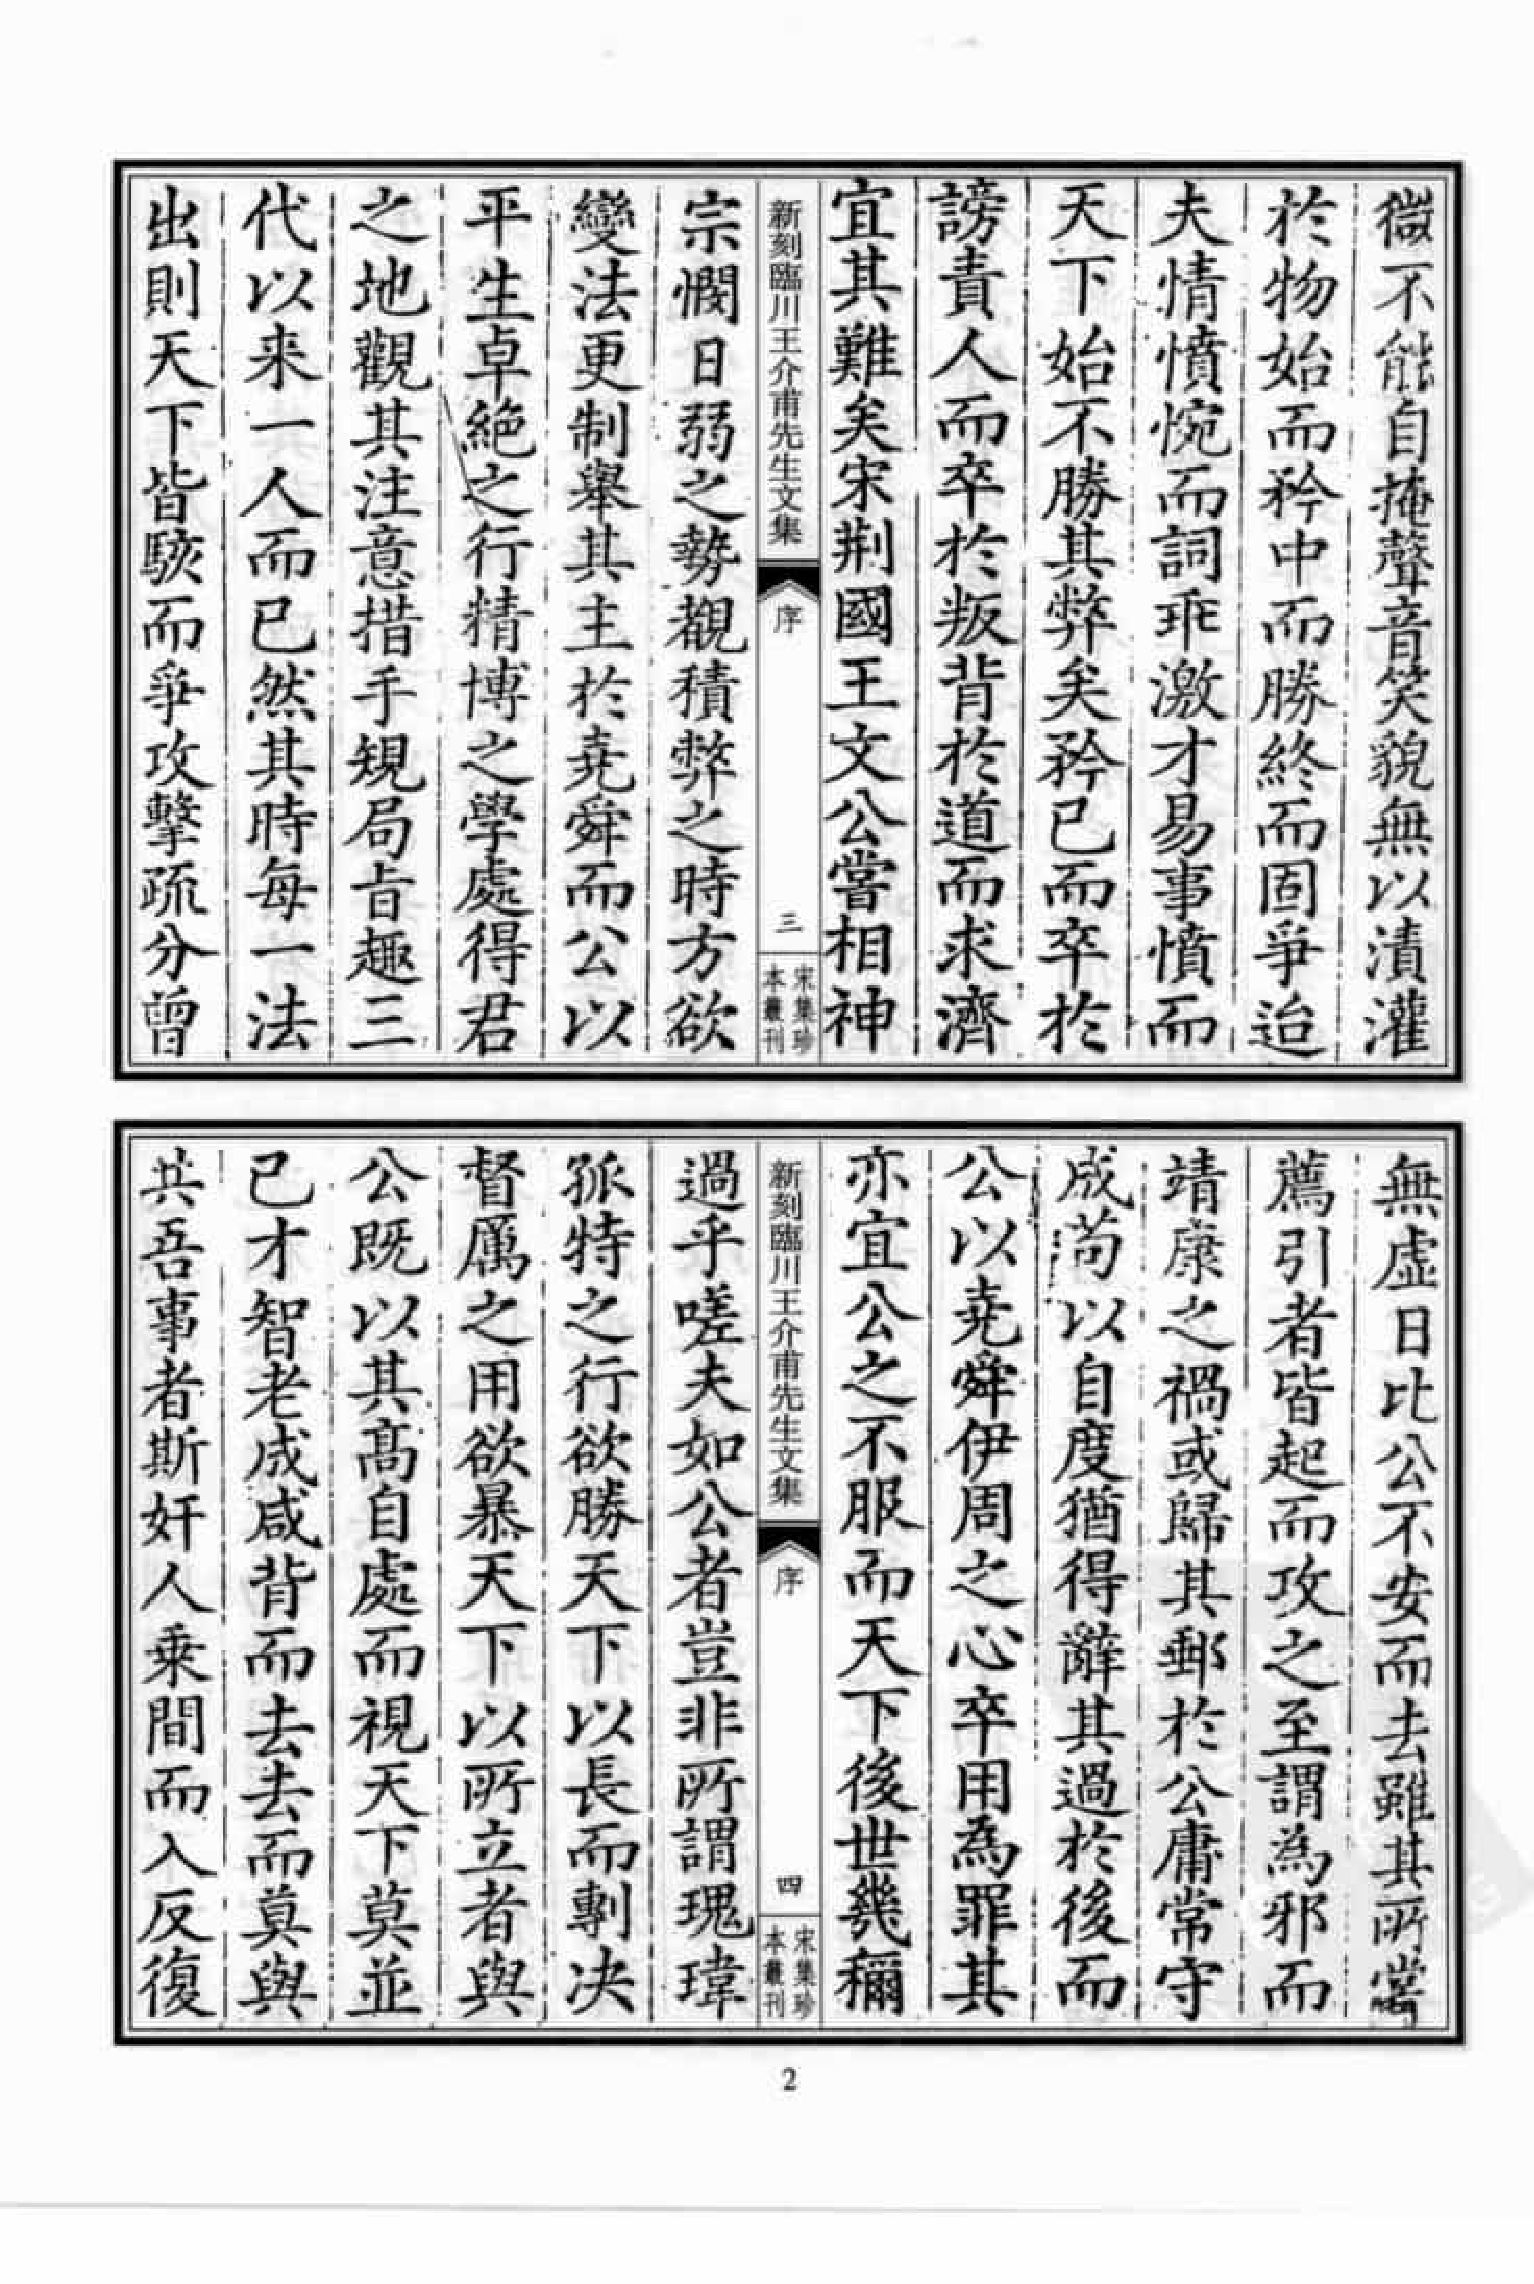 微不能自掩聲音笑貌無以漬灌
於物始而矜中而勝終而固爭迨
夫情憤惋而詞乖激才易事憤而
天下始不勝其弊矣矜已而卒於
謗責人而卒於叛背於道而求濟
宜其難矣宋荆國王文公嘗相神
新刻臨川王介甫先生文集
序
三
宋集珍
本叢刊
宗憫日弱之勢觀積弊之時方欲
變法更制舉其主於堯舜而公以
平生卓絶之行精博之學處得君
之地觀其注意措手規局旨趣三
代以来一人而已然其時每一法
出則天下皆駭而爭攻擊疏分曾
無虚日比公不安而去雖其所嘗
薦引者皆起而攻之至謂為邪而
靖康之禍或歸其郵於公庸常守
成苟以自度猶得辭其過於後而
公以堯舜伊周之心卒用為罪其
亦宜公之不服而天下後世幾稱
新刻臨川王介甫先生文集
序
四
宋集珍
本叢刊
過乎嗟夫如公者豈非所謂瑰瑋
孤特之行欲勝天下以長而剸决
督厲之用欲暴天下以所立者與
公既以其高自處而視天下莫並
已才智老成咸背而去去而莫與
共吾事者斯奸人乗間而入反復
2